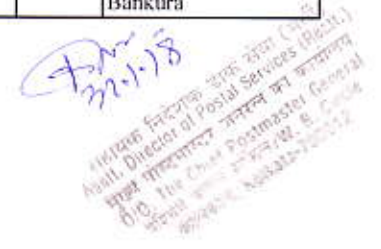 Bankura
सहायक निदेशक डाक सेवा
Asstt. Director of Postal Services (Rectt.)
मुख्य पोस्टमास्टर जनरल का कार्यालय
O/O. The Chief Postmaster General
W. B. Circle
Kolkata-700012